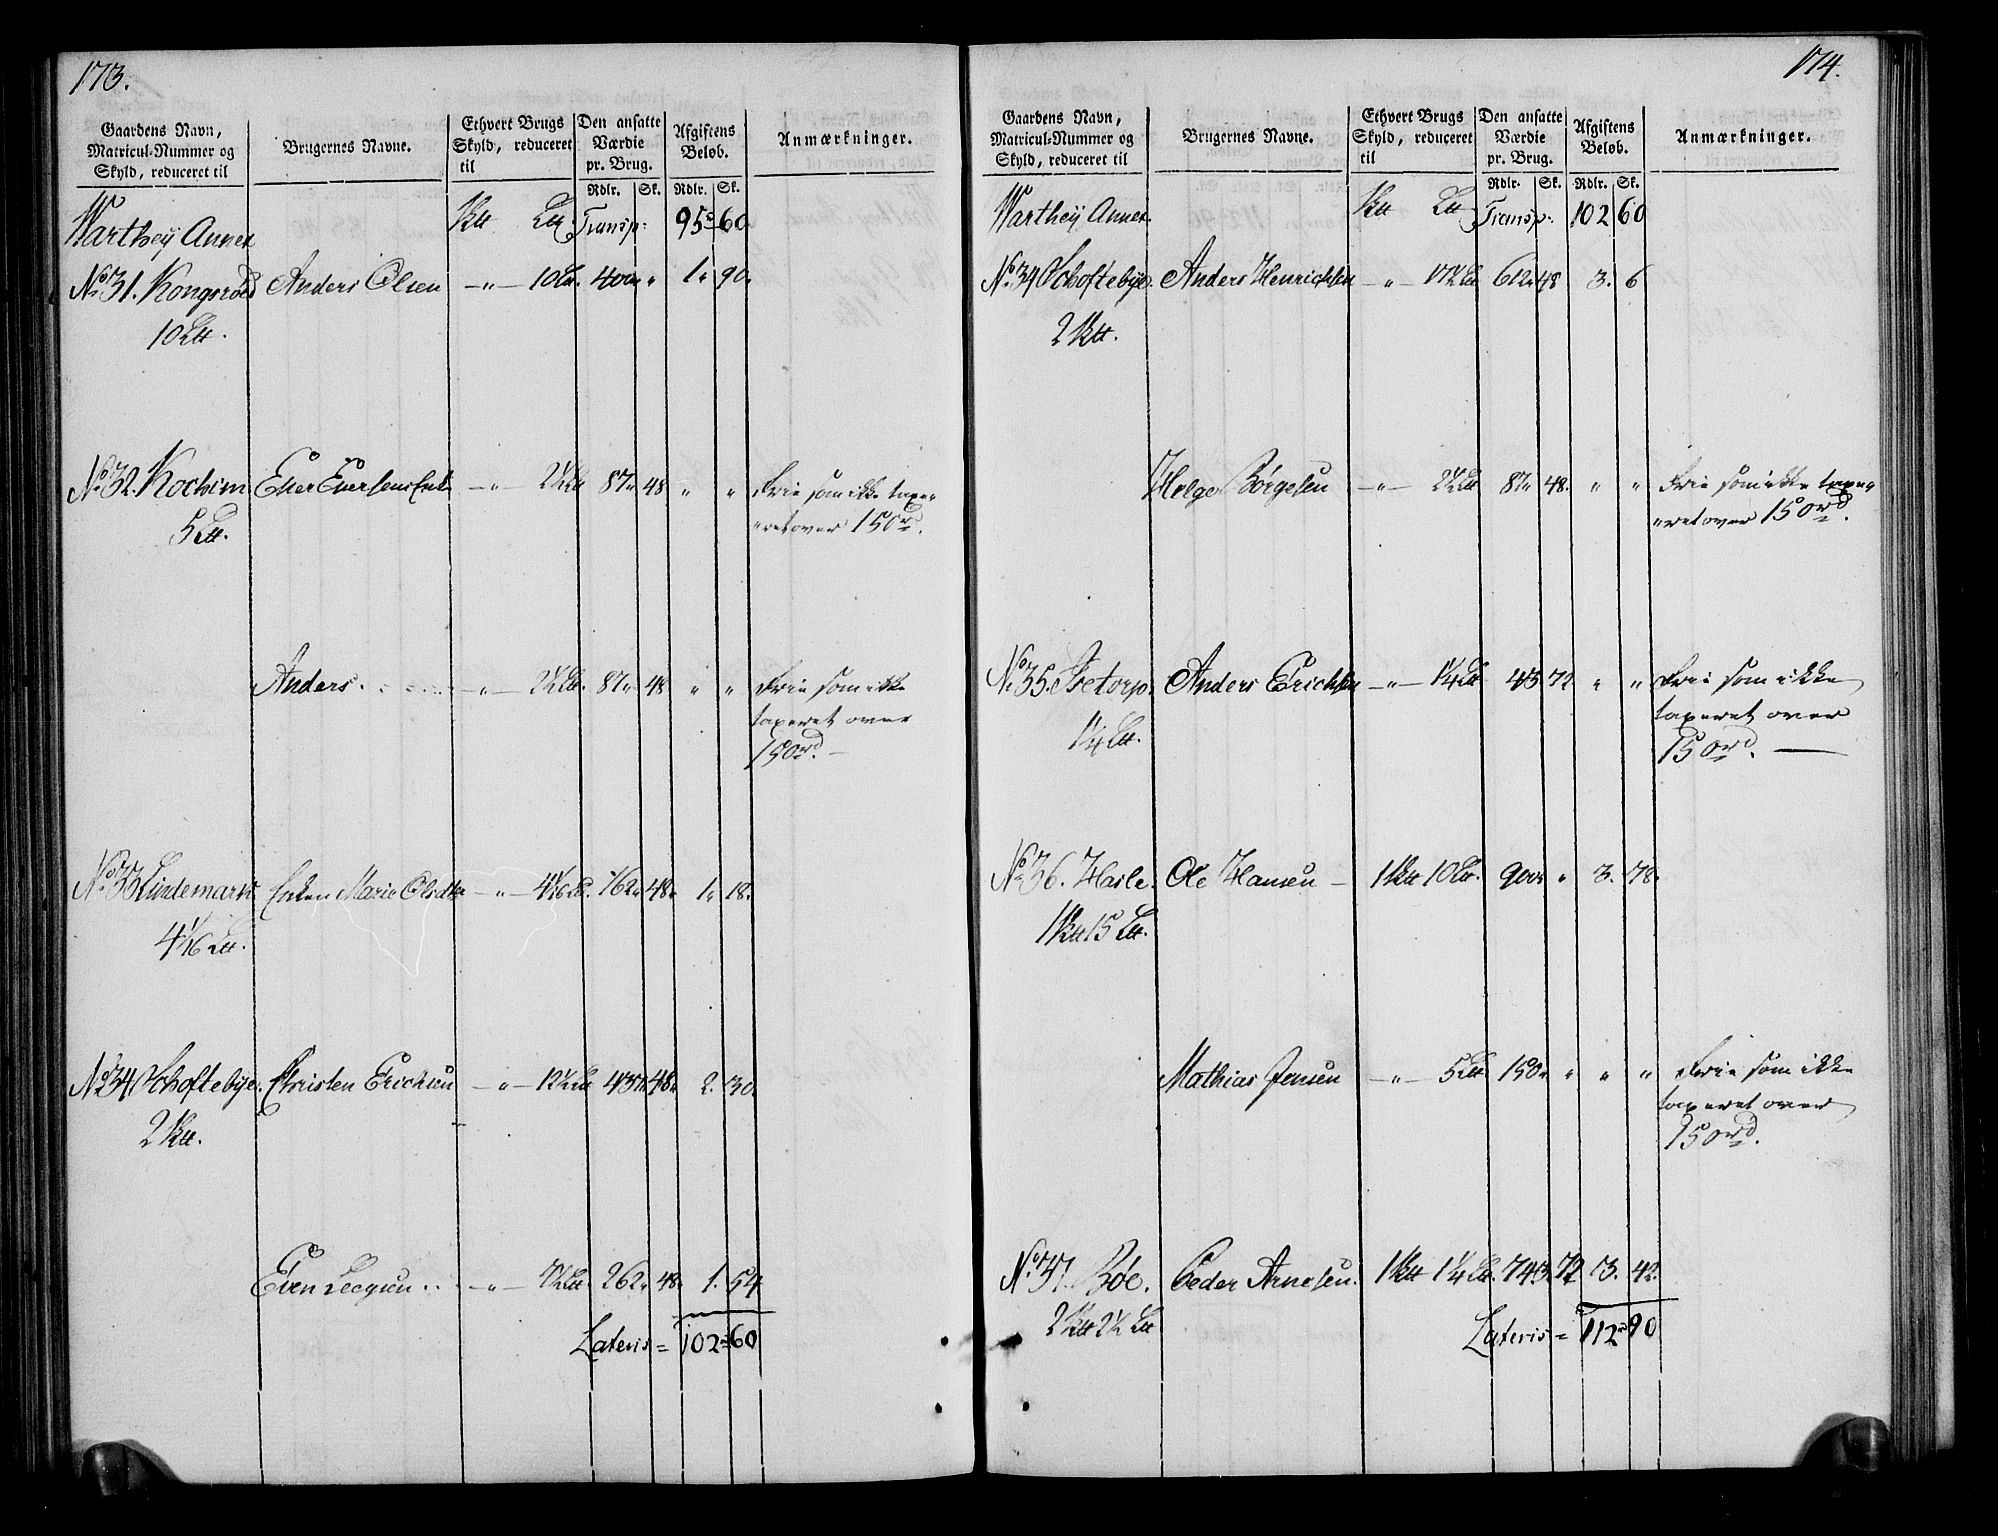 173.
Gaardens Navn, Matricul-Nummer og Skyld, reduceret til | Brugernes Navne. | Ethvert Brugs Skyld, reduceret til | Den ansatte Værdie pr. Brug. | Afgiftens Beløb. | Anmærkninger.
Rdlr. | Sk. | Rdlr. | Sk.
Warthey Annex | Transp: | 95 | 60
No 31. Kongsrød | Anders Olsen | 10 | 400 | " | 1 | 90.
10
No 32. | 2½ | 87 | 48 | " | " | Frie som ikke taxe-
5 | eret over 150 rd.
Anders | 2½ | 87 | 48 | " | " | Frie som ikke
taxeret over
150 rd. —
No 33 Lindemark | Enken Marie Olsdtr | 4 1/16 | 162 | 48 | 1. | 18.
4 1/16
No 34 Schoftebye. | Christen Erichsen | 12½ | 437 | 48 | 2. | 30.
2
Even | 7½ | 262 | 48 | 1. | 54
Lateris = 102 = 60
174.
Gaardens Navn, Matricul-Nummer og Skyld, reduceret til | Brugernes Navne. | Ethvert Brugs Skyld, reduceret til | Den ansatte Værdie pr. Brug. | Afgiftens Beløb. | Anmærkninger.
Rdlr. | Sk. | Rdlr. | Sk.
Warthey Annex. | Transp: | 102 | 60
No 34 Schoftebye. | Anders Henrichsen | 17½ | 612 | 48 | 3. | 6
2
Helge Børgesen | 2½ | 87 | 48. | " | " | Frie som ikke taxe-
eret over 150 rd.
No 35. | Anders Erichsen | 1¼ | 43 | 72 | " | " | Frie som ikke
1¼ | taxeret over
150 rd. —
No 36. Hasle. | Ole Hansen — | 1 10 | 900 | " | 3. | 78.
1 15
Mathias Jensen | 5 | 150 | " | " | " | Frie som ikke
taxeret over
150 rd.
No 37. Bøe. | Peder Arnesen. | 1 1¼ | 743. | 72 | 3. | 42.
2 2½
Lateris = 112 90